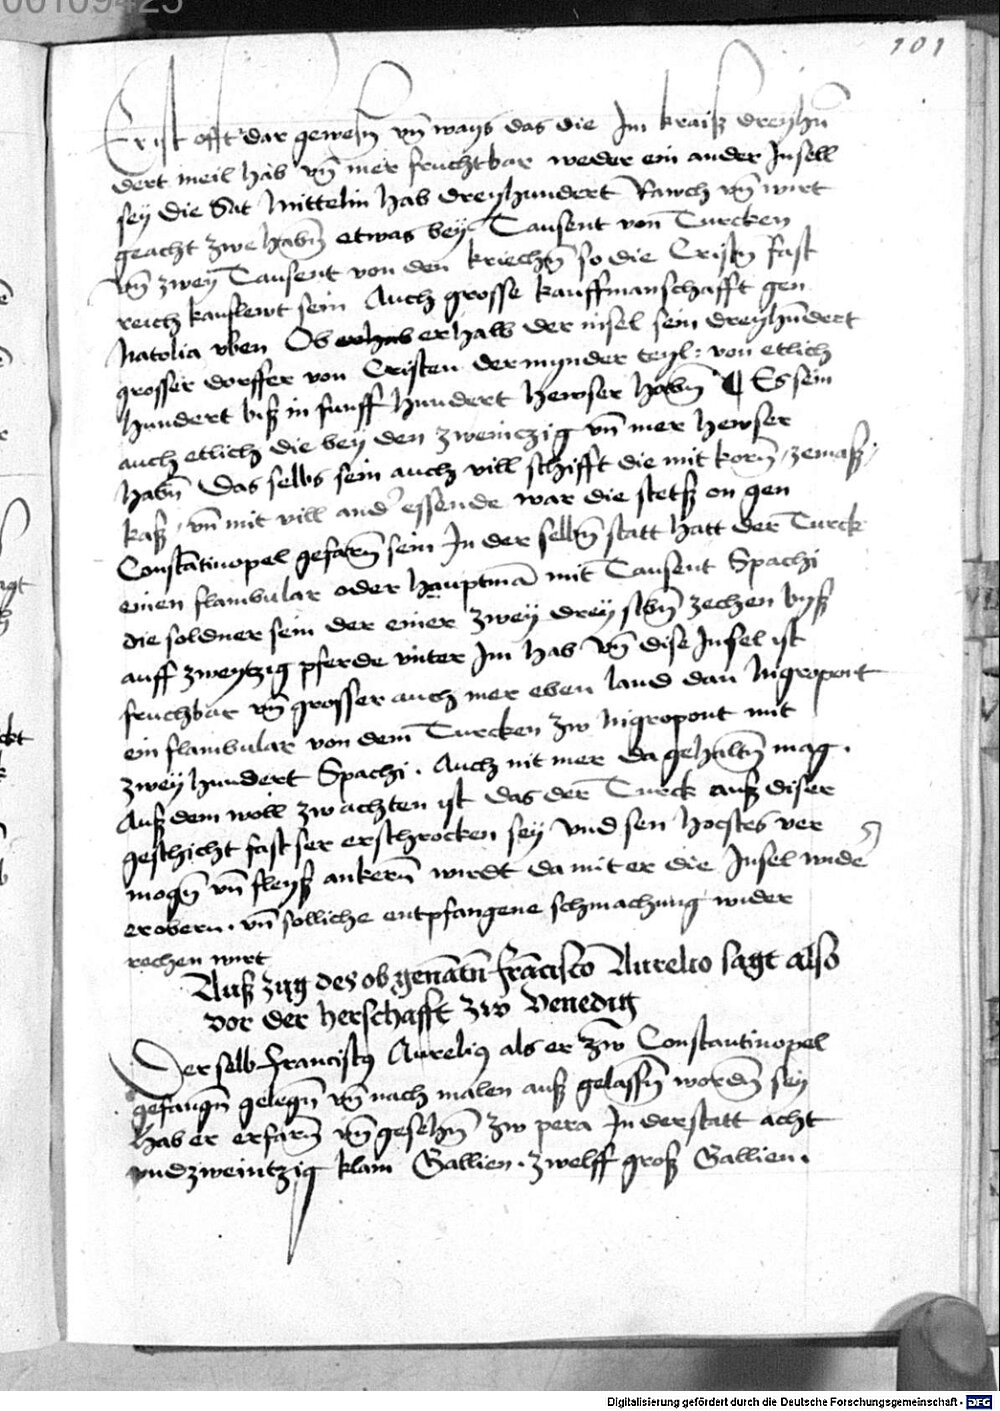 00109425
101
Er ist offt dar gewesn̄ vn̄ ways das die Im kraiß dreyhū
dert meil hab vn̄ mer fruchtbar weder ein ander Insell
sey die Stat Mittelin hab dreyhundert Rawch vn̄ wirt
geacht zwe habn̄ etwas bey Tausent von Turcken
vn̄ zwey Tausent von den kriechn̄ so die Cristn̄ fast
reich kauflewt sein Auch grosse kauffmanschafft gen
Natolia vben Ob erhalb der insel sein dreyhūdert
grosser dorffer von Cristen der mynder teyl von etlich
hundert biß in funff hundert hewser habn̄ ¶ Es sein
auch etlich die bey den zweinczig vn̄ mer hewser
habn̄ Das selbs sein auch vill schifft die mit korn̄
kaß vn̄ mit vill and' essende war die stetß on gen
Constātinopel gefarn̄ sein In der selbn̄ statt hatt der Turck
einen flambular oder hauptmā mit Tausent Spachi
die soldner sein der einer zwey drey sibn̄ zechen byß
auff zweytzig pferde vnter Im hab vn̄ dise Insel ist
fruchbar vn̄ grosser auch mer eben land dan Nigropont
ein flambular von dem Turcken zw Nigropont mit
zwey hundert Spachi. Auch nit mer da gehaltn̄ mag.
Auß dem woll zw achten ist das der Turck auß diser
geschicht fast ser erschrocken sey vnd sen hochstes ver
mogn̄ vn̄ fleyß ankern̄ wirdt da mit er die Insel wid'
erobern. vn̄ solliche entpfangene schmachung wider
rechen wirt
Auß zug des ob genātn̄ francisco Aurelio sagt also
vor der herschafft zw Venedig
Der selb franciscus Aurelius als er zw Constantinopel
gefangn̄ gelegn̄ vn̄ nach malen auß gelassn̄ wordn̄ sey
hab er erfarn̄ vn̄ gesehn̄ zw pera In der statt acht
vnd zweintzig klain Gallien. zwelff groß Gallien.
Digitalisierung gefördert durch die Deutsche Forschungsgemeinschaft - DFG